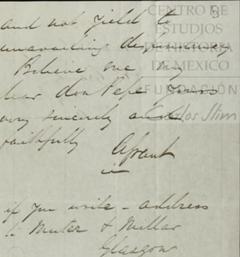 and not yield to
unavailing despondency
Believe me my
dear don Pepe yours
very sincerely and
faithfully
if you write - address
Muter & Millar
Glasgow
CENTRO DE
ESTUDIOS
DE MEXICO
FUNDACIÓN
Carlos Slim